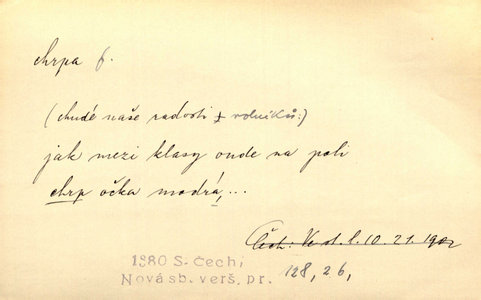 chrpa f.
(chudé naše radosti + rolníků:)
jak mezi klasy onde na poli
chrp očka modrá,...
Čech: Ve st. l. 10. 21. 1902
1380 S. Čech,
Novásb. verš. pr. 128, 26,